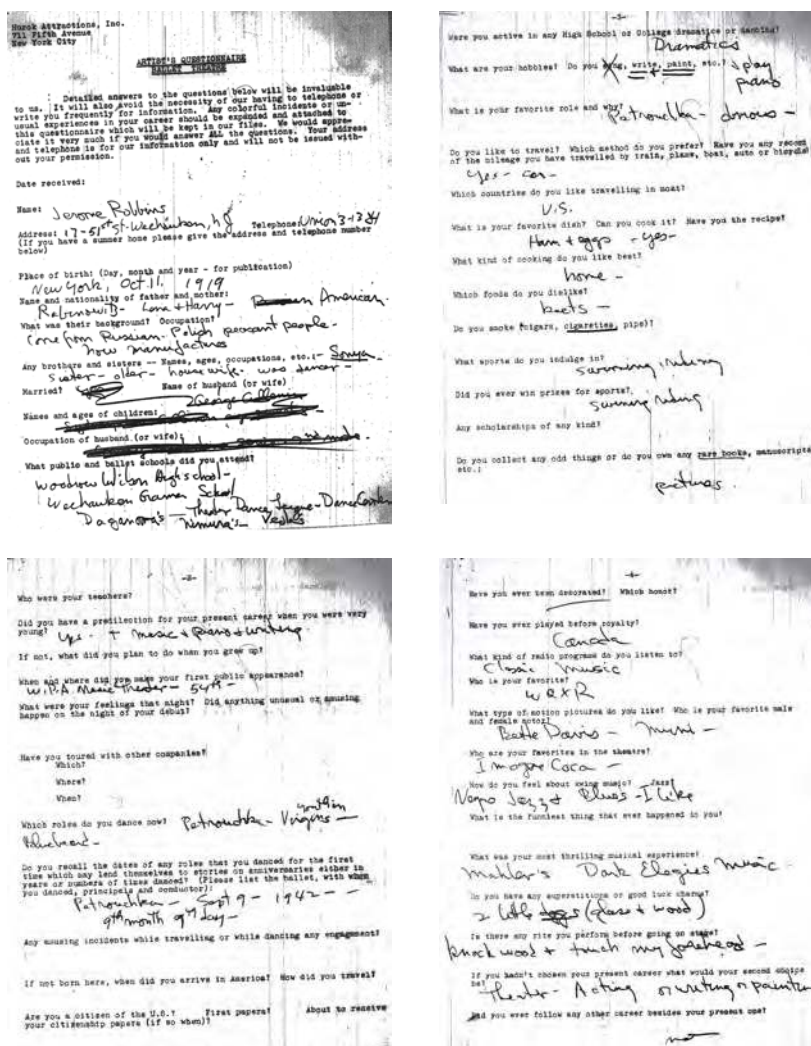 Hurok Attractions, Inc.
711 Fifth Avenue
New York City
ARTIST'S QUESTIONNAIRE
BALLET THEATRE
Detailed answers to the questions below will be invaluable
to us. It will also avoid the necessity of our having to telephone or
write you frequently for information. Any colorful incidents or un-
usual experiences in your career should be expanded and attached to
this questionnaire which will be kept in our files. We would appre-
ciate it very much if you would answer ALL the questions. Your address
and telephone is for our information only and will not be issued with-
out your permission.
Date received:
Name: Jerome Robbins
Address: 17-51st St. Weehawken, NJ Telephone: Union 3-
(If you have a summer home please give the address and telephone number
below)
Place of birth: (Day, month and year - for publication)
New York, Oct. 11. 1919
Name and nationality of father and mother:
Rabinowitz- Lena + Harry - American.
What was their background? Occupation?
Come from Russian-Polish peasant people-
now manufactures
Any brothers and sisters -- Names, ages, occupations, etc.:- Sonya
sister - older - housewife - was dancer -
Married? Name of husband (or wife)
George
Names and ages of children:
Occupation of husband (or wife):
What public and ballet schools did you attend?
Woodrow Wilson High school -
Weehauken Gramer School
Daganova's - Theater Dance League - Dance Center
Nimura's - Veola's
-2-
Who were your teachers?
Did you have a predilection for your present career when you were very
young? yes - + music + piano + writing
If not, what did you plan to do when you grew up?
When and where did you make your first public appearance?
W.P.A. Music Theater - 54th -
What were your feelings that night? Did anything unusual or amusing
happen on the night of your debut?
Have you toured with other companies?
Which?
Where?
When?
Which roles do you dance now? Petrouchka - Virgins - youth in
Bluebeard -
Do you recall the dates of any roles that you danced for the first
time which may lend themselves to stories on anniversaries either in
years or numbers of times danced? (Please list the ballet, with whom
you danced, principals and conductor):
Petrouchka - Sept 9 - 1942 - -
9th month 9th day -
Any amusing incidents while travelling or while dancing any engagement?
If not born here, when did you arrive in America? How did you travel?
Are you a citizen of the U.S.? First papers? About to receive
your citizenship papers (if so when)?
-3-
Were you active in any High School or College dramatics or dancing?
Dramatics
What are your hobbies? Do you sing, write, paint, etc.? + play
piano
What is your favorite role and why?
Petrouchka -
Do you like to travel? Which method do you prefer? Have you any record
of the mileage you have travelled by train, plane, boat, auto or bicycle?
Yes - car -
Which countries do you like travelling in most?
U.S.
What is your favorite dish? Can you cook it? Have you the recipe?
Ham + eggs - yes -
What kind of cooking do you like best?
home -
Which foods do you dislike?
beets -
Do you smoke (cigars, cigarettes, pipe)?
What sports do you indulge in?
swimming, riding
Did you ever win prizes for sports?
swiming riding
Any scholarships of any kind?
Do you collect any odd things or do you own any rare books, manuscripts
etc.:
pictures.
-4-
Have you ever been decorated? Which honor?
Have you ever played before royalty?
Canada
What kind of radio programs do you listen to?
Classic Music
Who is your favorite?
WQXR
What type of motion pictures do you like? Who is your favorite male
and female actor?
Bette Davis - Muni -
Who are your favorites in the theatre?
Imogene Coca -
How do you feel about swing music? Jazz?
Negro Jazz + Blues - I like
What is the funniest thing that ever happened to you?
What was your most thrilling musical experience?
Mahler's Dark Elegies music -
Do you have any superstitions or good luck charms?
2 little (glass + wood)
Is there any rite you perform before going on stage?
knock wood + touch my forehead -
If you hadn't chosen your present career what would your second choice
be?
Theater - Acting or writing or painter
Did you ever follow any other career besides your present one?
not